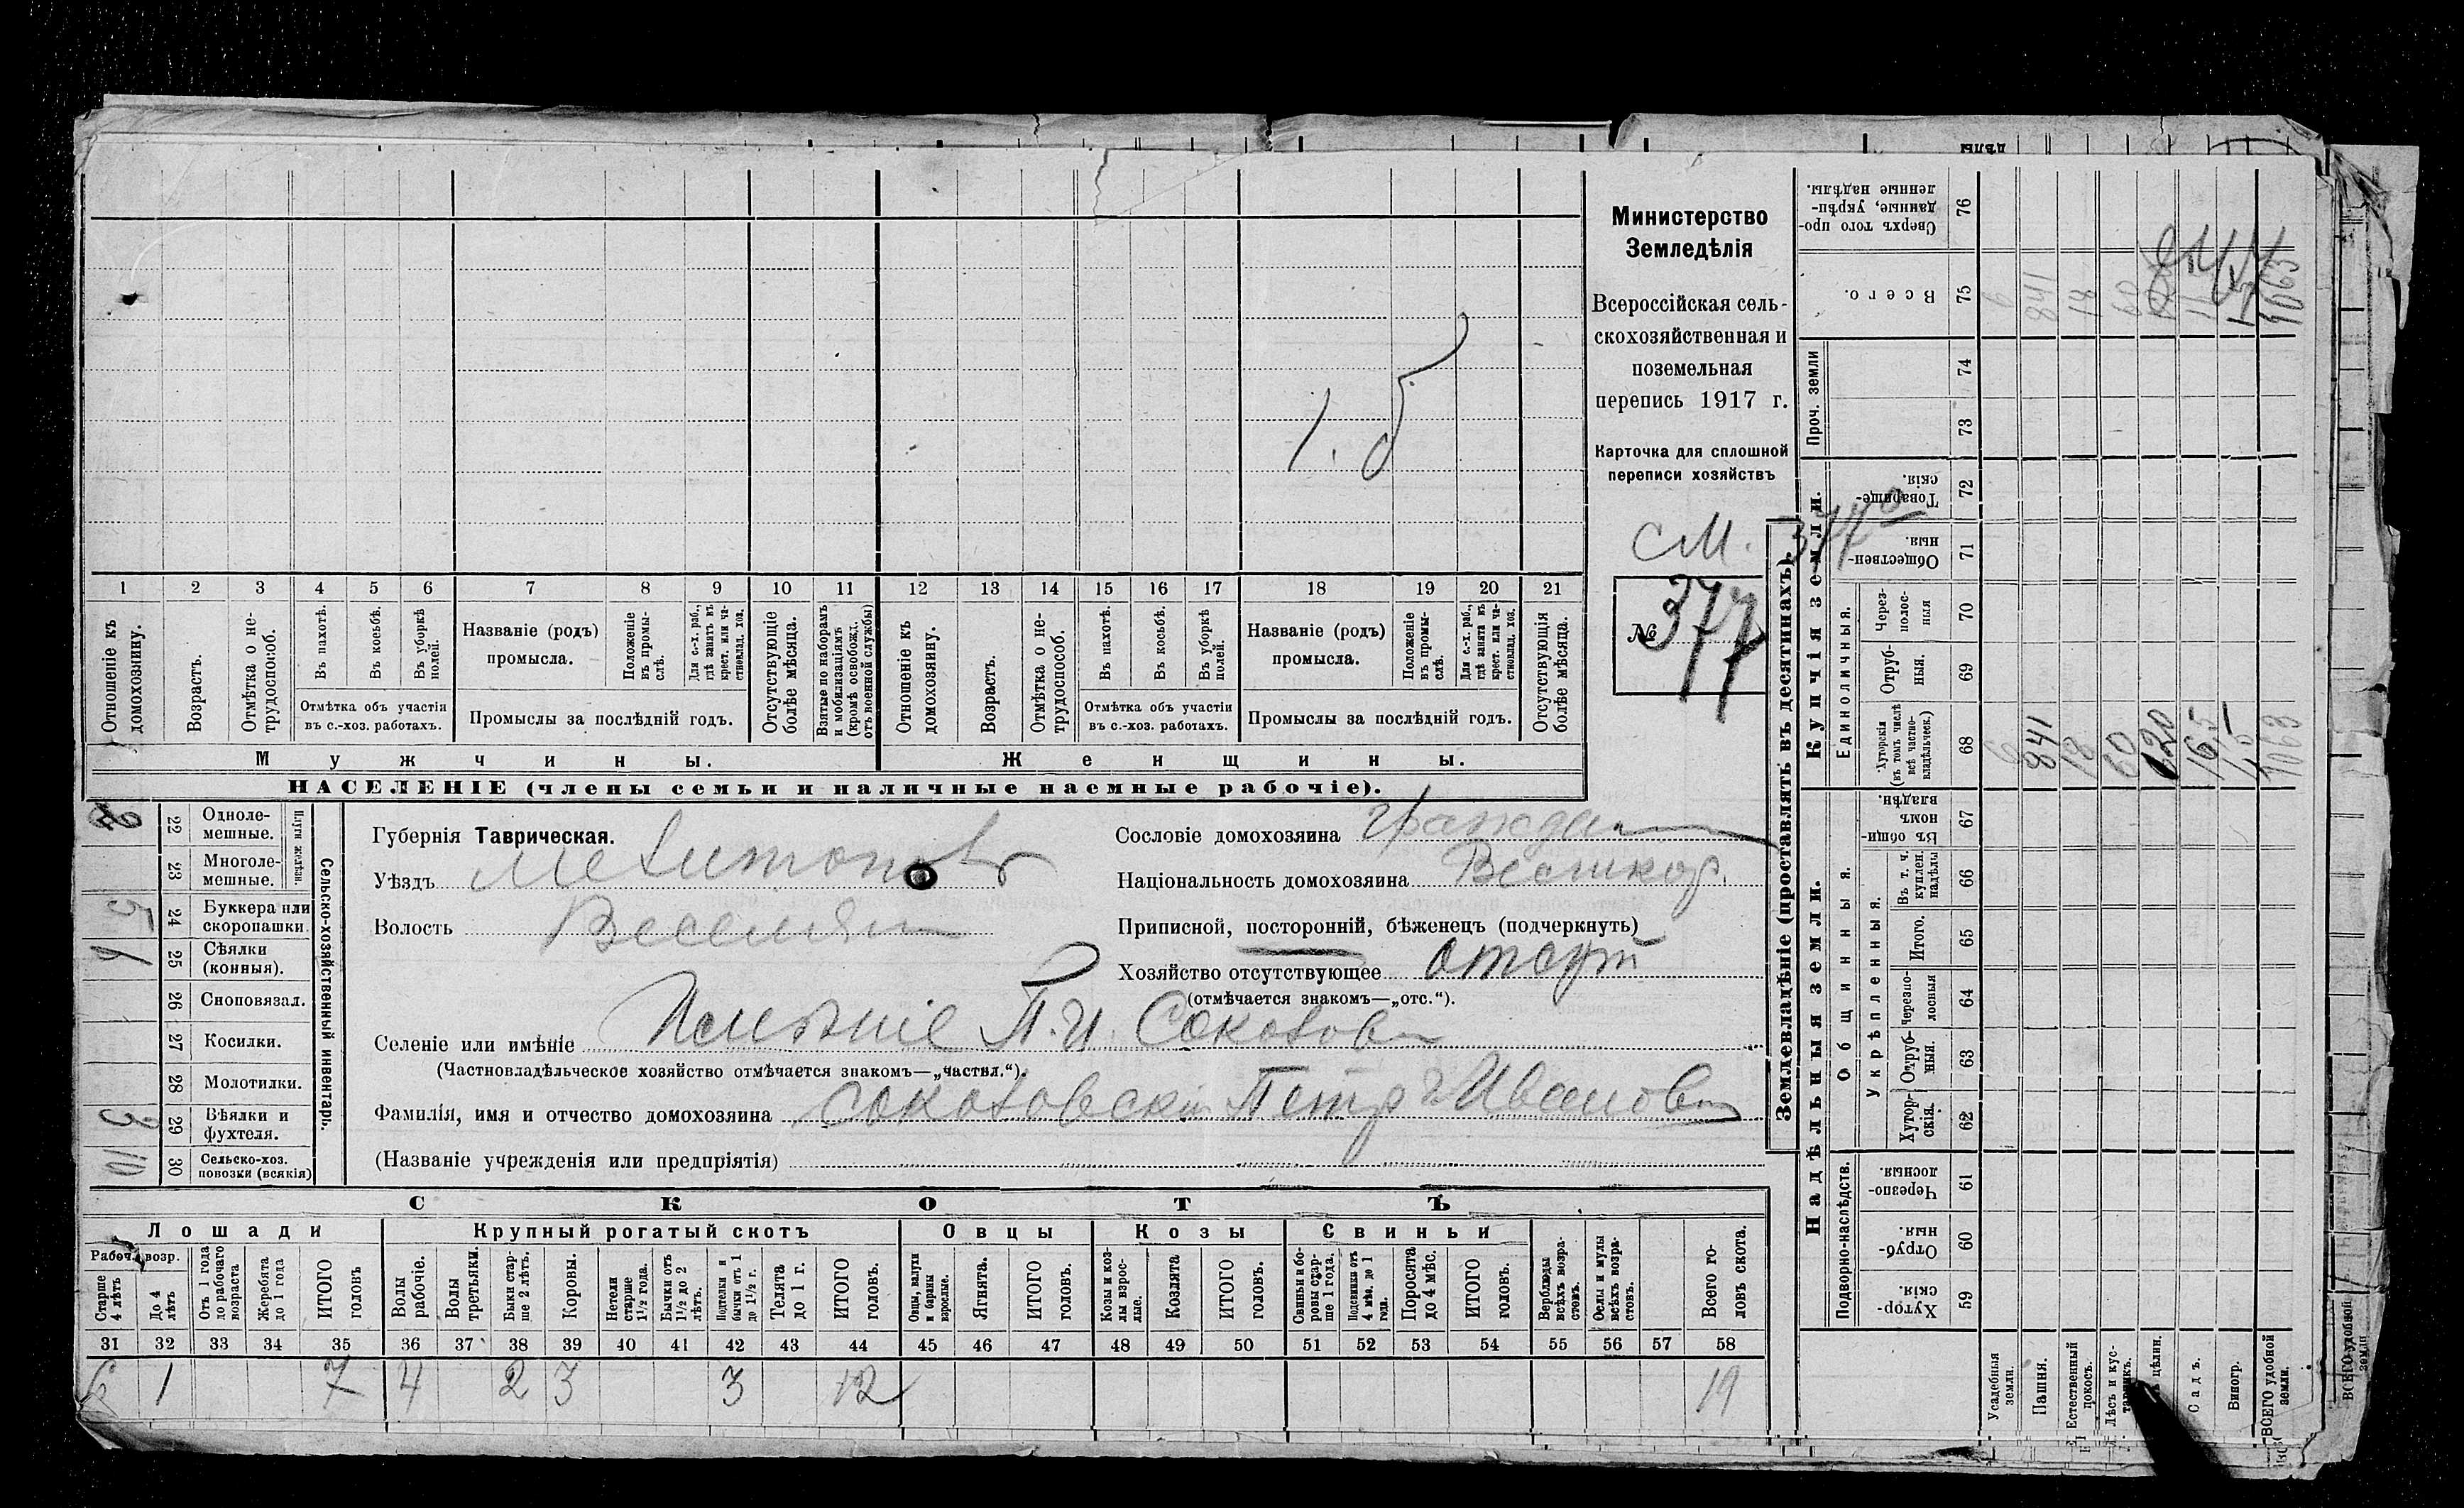 1 2 3 4 5 6 7 8 9 10 11 12 13 14 15 16 17 18 19 20 21
Отношеніе къ домохозяину.
Возрастъ.
Отмѣтка о нетрудоспособ.
Въ пахотѣ.
Въ косьбѣ.
Въ уборкѣ полей.
Отмѣтка объ участіи
въ с.-хоз. работахъ.
Названіе (родъ)
промысла.
Положеніе въ промыслѣ.
Для с.-х. раб., гдѣ занятъ въ крест. или частновлад. хоз.
Промыслы за послѣдній годъ.
Отсутствующіе болѣе мѣсяца.
Взятые по наборамъ и мобилизаціямъ (кромѣ освобожд. отъ военной службы)
Отношеніе къ домохозяину.
Возрастъ.
Отмѣтка о нетрудоспособ.
Въ пахотѣ.
Въ косьбѣ.
Въ уборкѣ полей.
Отмѣтка объ участіи
въ с.-хоз. работахъ.
Названіе (родъ)
промысла.
Положеніе въ промыслѣ.
Для с.-х. раб., гдѣ занята въ крест. или частновлад. хоз.
Промыслы за послѣдній годъ.
Отсутствующія болѣе мѣсяца.
Мужчины. Женщины.
НАСЕЛЕНІЕ (члены семьи и наличные наемные рабочіе).
Министерство
Земледѣлія
Всероссійская сель-
скохозяйственная и
поземельная
перепись 1917 г.
Карточка для сплошной
переписи хозяйствъ
см. 377
№ 377
Сельско-хозяйственный инвентарь.
Плуги желѣзн.
22 Одноле-
мешные.
23 Многоле-
мешные.
5 24 Буккера или
скоропашки.
1 25 Сѣялки
(конныя).
26 Сноповязал.
27 Косилки.
28 Молотилки.
3 29 Вѣялки и
фухтеля.
10 30 Сельско-хоз.
повозки (всякія)
Губернія Таврическая.
Уѣздъ Мелитопол
Волость Веселян
Сословіе домохозяина граждан
Національность домохозяина Великор.
Приписной, посторонній, бѣженецъ (подчеркнуть)
Хозяйство отсутствующее отсут
(отмѣчается знакомъ—„отс.“).
Селеніе или имѣніе Имѣніе П. И.
(Частновладѣльческое хозяйство отмѣчается знакомъ—„частвл.“).
Фамилія, имя и отчество домохозяина Петръ Иванов
(Названіе учрежденія или предпріятія)
СКОТЪ
Лошади Крупный рогатый скотъ Овцы Козы Свиньи
Рабоч. возр.
Старше 4 лѣтъ
До 4 лѣтъ
Отъ 1 года до рабочаго возраста
Жеребята до 1 года
ИТОГО головъ
Волы рабочіе.
Волы третьяки.
Быки старше 2 лѣтъ.
Коровы.
Нетели старше 1½ года.
Бычки отъ 1½ до 2 лѣтъ.
Подтелки и бычки отъ 1 до 1½ г.
Телята до 1 г.
ИТОГО головъ.
Овцы, валухи и бараны взрослые.
Ягнята.
ИТОГО головъ.
Козы и козлы взрослые.
Козлята
ИТОГО головъ.
Свиньи и боровы старше 1 года.
Подсвинки отъ 4 мѣс. до 1 года.
Поросята до 4 мѣс.
ИТОГО головъ.
Верблюды всѣхъ возрастовъ.
Ослы и мулы всѣхъ возрастовъ.
Всего головъ скота.
31 32 33 34 35 36 37 38 39 40 41 42 43 44 45 46 47 48 49 50 51 52 53 54 55 56 57 58
6 1 7 4 2 3 3 12 19
Землевладѣніе (проставлять въ десятинахъ).
Купчія земли.
Надѣльныя земли.
Сверхъ того проданные, укрѣпленные надѣлы. 76
Всего. 75
Проч. земли 74 73
Товарищескія. 72
Общественныя. 71
Единоличныя.
Черезполосныя 70
Отрубныя. 69
Хуторскія (въ томъ числѣ всѣ частновладѣльческ.) 68
Общинныя.
Въ общинномъ владѣн. 67
Укрѣпленныя.
Въ т. ч. куплен. надѣлы 66
Итого. 65
Черезполосныя 64
Отрубныя. 63
Хуторскія. 62
Подворно-наслѣдств.
Черезполосныя. 61
Отрубныя. 60
Хуторскія. 59
Усадебныя земли.
Пашня.
Естественный покосъ.
Лѣсъ и кус-
цѣлин.
Садъ.
Виногр.
ВСЕГО удобной земли.
6 841 18 60 120 1063
6 841 18 60 1063
ВСЕГО удобной земли